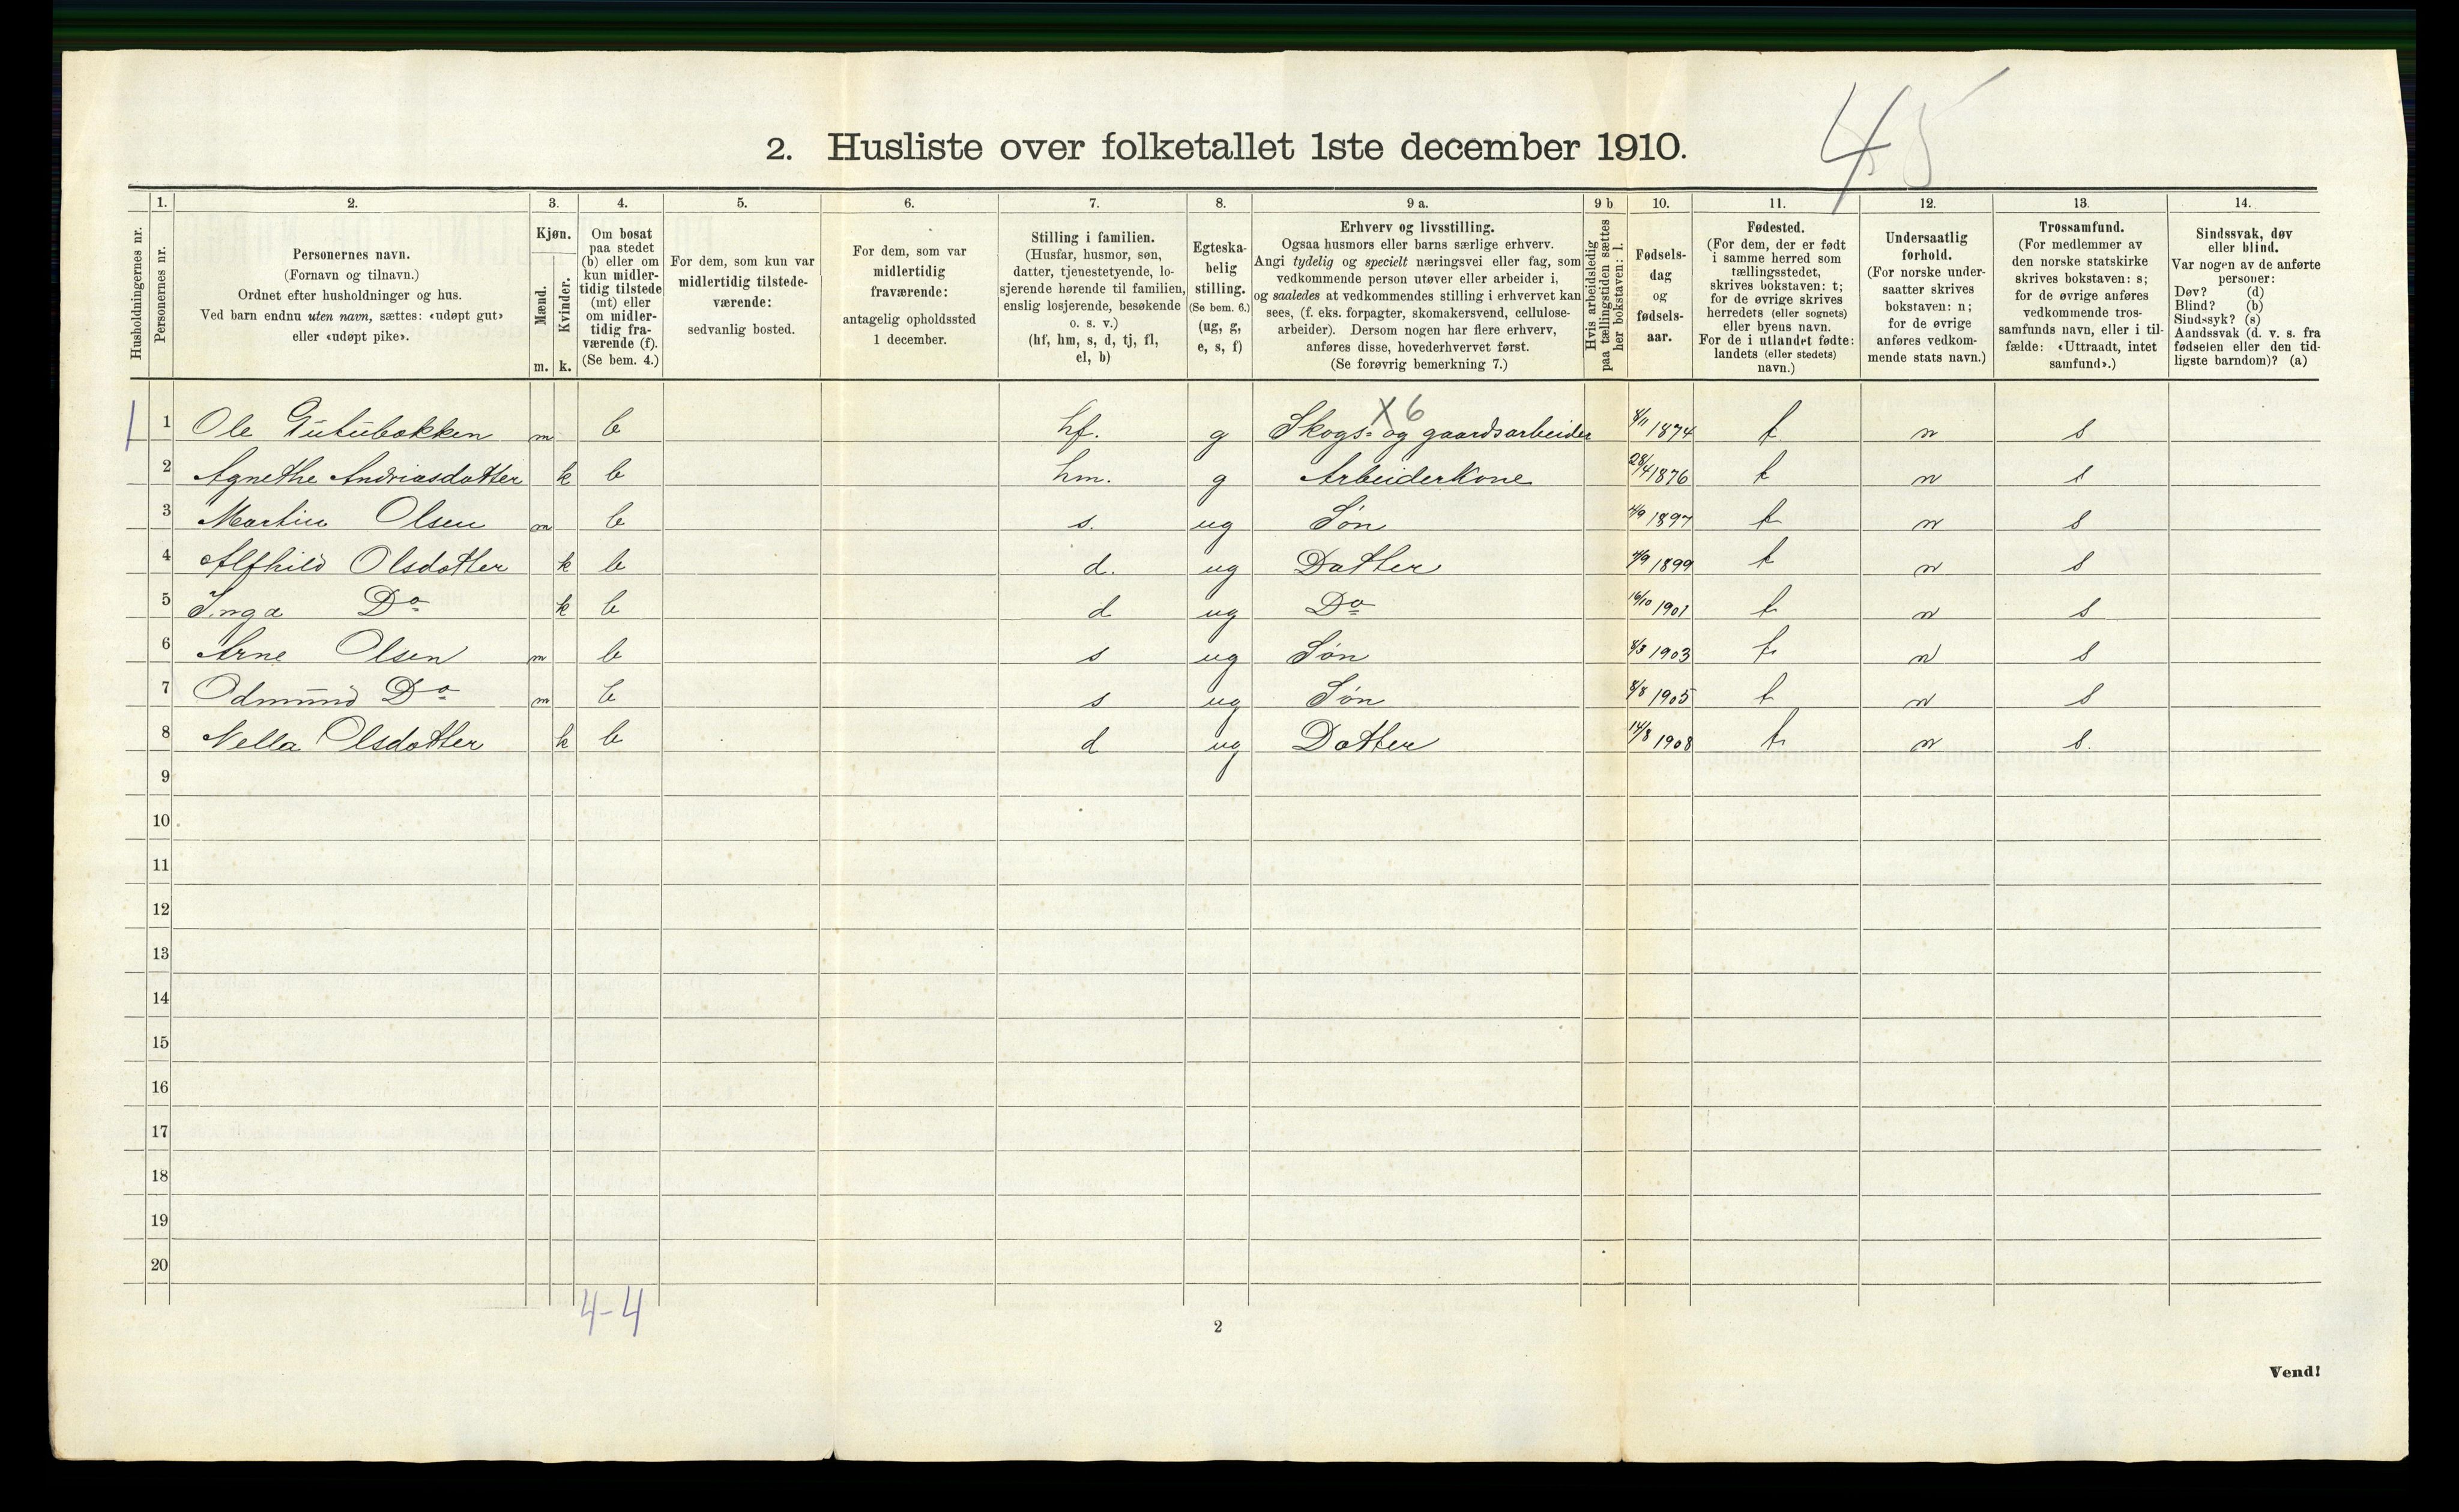 45
2. Husliste over folketallet 1ste december 1910.
Husholdningernes nr.
1. Personernes nr.
2. Personernes navn. (Fornavn og tilnavn.) Ordnet efter husholdninger og hus. Ved barn endnu uten navn, sættes: «udøpt gut» eller «udøpt pike».
3. Kjøn. Mænd. m. Kvinder. k.
4. Om bosat paa stedet (b) eller om kun midlertidig tilstede (mt) eller om midlertidig fraværende (f). (Se bem. 4.)
5. For dem, som kun var midlertidig tilstedeværende: sedvanlig bosted.
6. For dem, som var midlertidig fraværende: antagelig opholdssted 1 december.
7. Stilling i familien. (Husfar, husmor, søn, datter, tjenestetyende, losjerende hørende til familien, enslig losjerende, besøkende o. s. v.) (hf, hm, s, d, tj, fl, el, b)
8. Egteskabelig stilling. (Se bem. 6.) (ug, g, e, s, f)
9 a. Erhverv og livsstilling. Ogsaa husmors eller barns særlige erhverv. Angi tydelig og specielt næringsvei eller fag, som vedkommende person utøver eller arbeider i, og saaledes at vedkommendes stilling i erhvervet kan sees, (f. eks. forpagter, skomakersvend, cellulosearbeider). Dersom nogen har flere erhverv, anføres disse, hovederhvervet først. (Se forøvrig bemerkning 7.)
9 b Hvis arbeidsledig paa tællingstiden sættes her bokstaven: l.
10. Fødselsdag og fødselsaar.
11. Fødested. (For dem, der er født i samme herred som tællingsstedet, skrives bokstaven: t; for de øvrige skrives herredets (eller sognets) eller byens navn. For de i utlandet fødte: landets (eller stedets) navn.)
12. Undersaatlig forhold. (For norske undersaatter skrives bokstaven: n; for de øvrige anføres vedkommende stats navn.)
13. Trossamfund. (For medlemmer av den norske statskirke skrives bokstaven: s; for de øvrige anføres vedkommende trossamfunds navn, eller i tilfælde: «Uttraadt, intet samfund».)
14. Sindssvak, døv eller blind. Var nogen av de anførte personer: Døv? (d) Blind? (b) Sindssyk? (s) Aandssvak (d. v. s. fra fødselen eller den tidligste barndom)? (a)
X6
1 1 Ole Gutubakken m b hf. g Skogs- og gaardsarbeider 4/11 1874 t n s
2 Agnethe Andriasdatter k b hm. g Arbeiderkone 28/4 1876 t n s
3 Martin Olsen m b s. ug Søn 1897 t n s
4 Alfhild Olsdatter k b d. ug Datter 1899 t n s
5 Inga Do k b d ug Do 16/10 1901 t n s
6 Arne Olsen m b s ug Søn 8/3 1903 t n s
7 Odmund Do m b s ug Søn 8/8 1905 t n s
8 Nella Olsdatter k b d ug Datter 14/8 1908 t n s.
9
10
11
12
13
14
15
16
17
18
19
20
4-4
2
Vend!